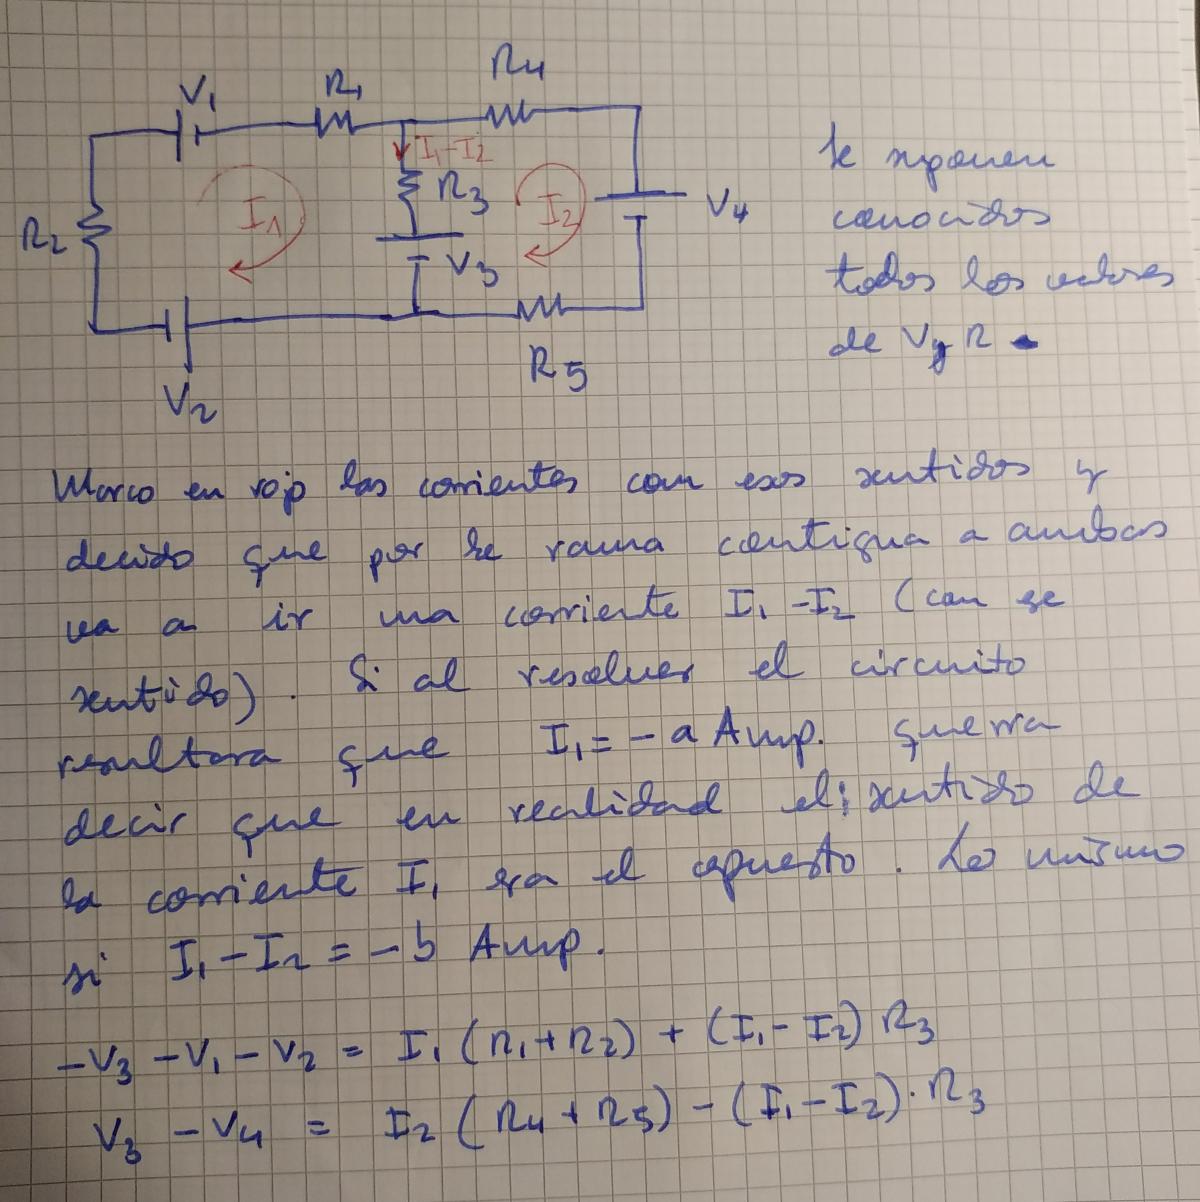 V1
R1
R4
I1-I2
R3
R2
I1
I2
V4
V3
V2
R5
se suponen
conocidos
todos los valores
de V y R
Marco en rojo las corrientes con esos sentidos y
decido que por la rama contigua a ambas
va a ir una corriente I1 - I2 (con ese
sentido). Si al resolver el circuito
resultara que I1 = - a Amp. querra
decir que en realidad el sentido de
la corriente I1 era el opuesto. Lo mismo
si I1 - I2 = - b Amp.
-V3 - V1 - V2 = I1 (R1 + R2) + (I1 - I2) R3
V3 - V4 = I2 (R4 + R5) - (I1 - I2) · R3